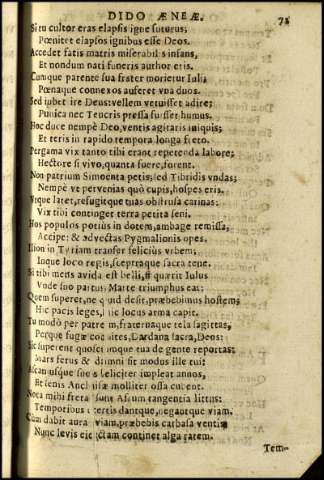 DIDO ÆNEÆ. 72
Si tu cultor eras elapsis igne futurus;
Pœnitet elapsos ignibus esse Deos.
Accedet fatis matris miserabilis infans,
Et nondum nati funeris author eris.
Cumque parente sua frater morietur Iuli;
Pœnaque connexos auferet vna duos.
Sed iubet ire Deus: vellem vetuisset adire;
Punica nec Teucris pressa fuisset humus.
Hoc duce nempè Deo, ventis agitaris iniquis;
Et teris in rapido tempora longa freto.
Pergama vix tanto tibi erant repetenda labore;
Hectore si vivo, quanta fuere, forent.
Non patrium Simoenta petis; sed Tibridis vndas;
Nempè vt pervenias quò cupis, hospes eris.
Vtque latet, refugitque tuas obstrusa carinas:
Vix tibi continget terra petita seni.
Hos populos potius in dotem, ambage remissa,
Accipe: & advectas Pygmalionis opes.
Ilion in Tyriam transfer feliciùs vrbem;
Inque loco regis, sceptraque sacra tene.
Si tibi mens avida est belli, si quærit Iulus
Vnde suo partus Marte triumphus eat:
Quem superet, ne quid desit, præbebimus hostem,
Hic pacis leges, hic locus arma capit.
Tu modò per patrem, fraternaque tela sagittas,
Perque fugæ comites, Dardana sacra, Deos:
Sic superent quoscunque tua de gente reportas:
Mars ferus & damni sit modus ille tui:
Ascaniusque suos feliciter impleat annos,
Et senis Anchisæ molliter ossa cubent.
Nota mihi freta sunt Afrum tangentia littus:
Temporibus certis dantque, negantque viam.
Cùm dabit aura viam, præbebis carbasa ventis:
Nunc levis eiectam continet alga ratem.
Tem-